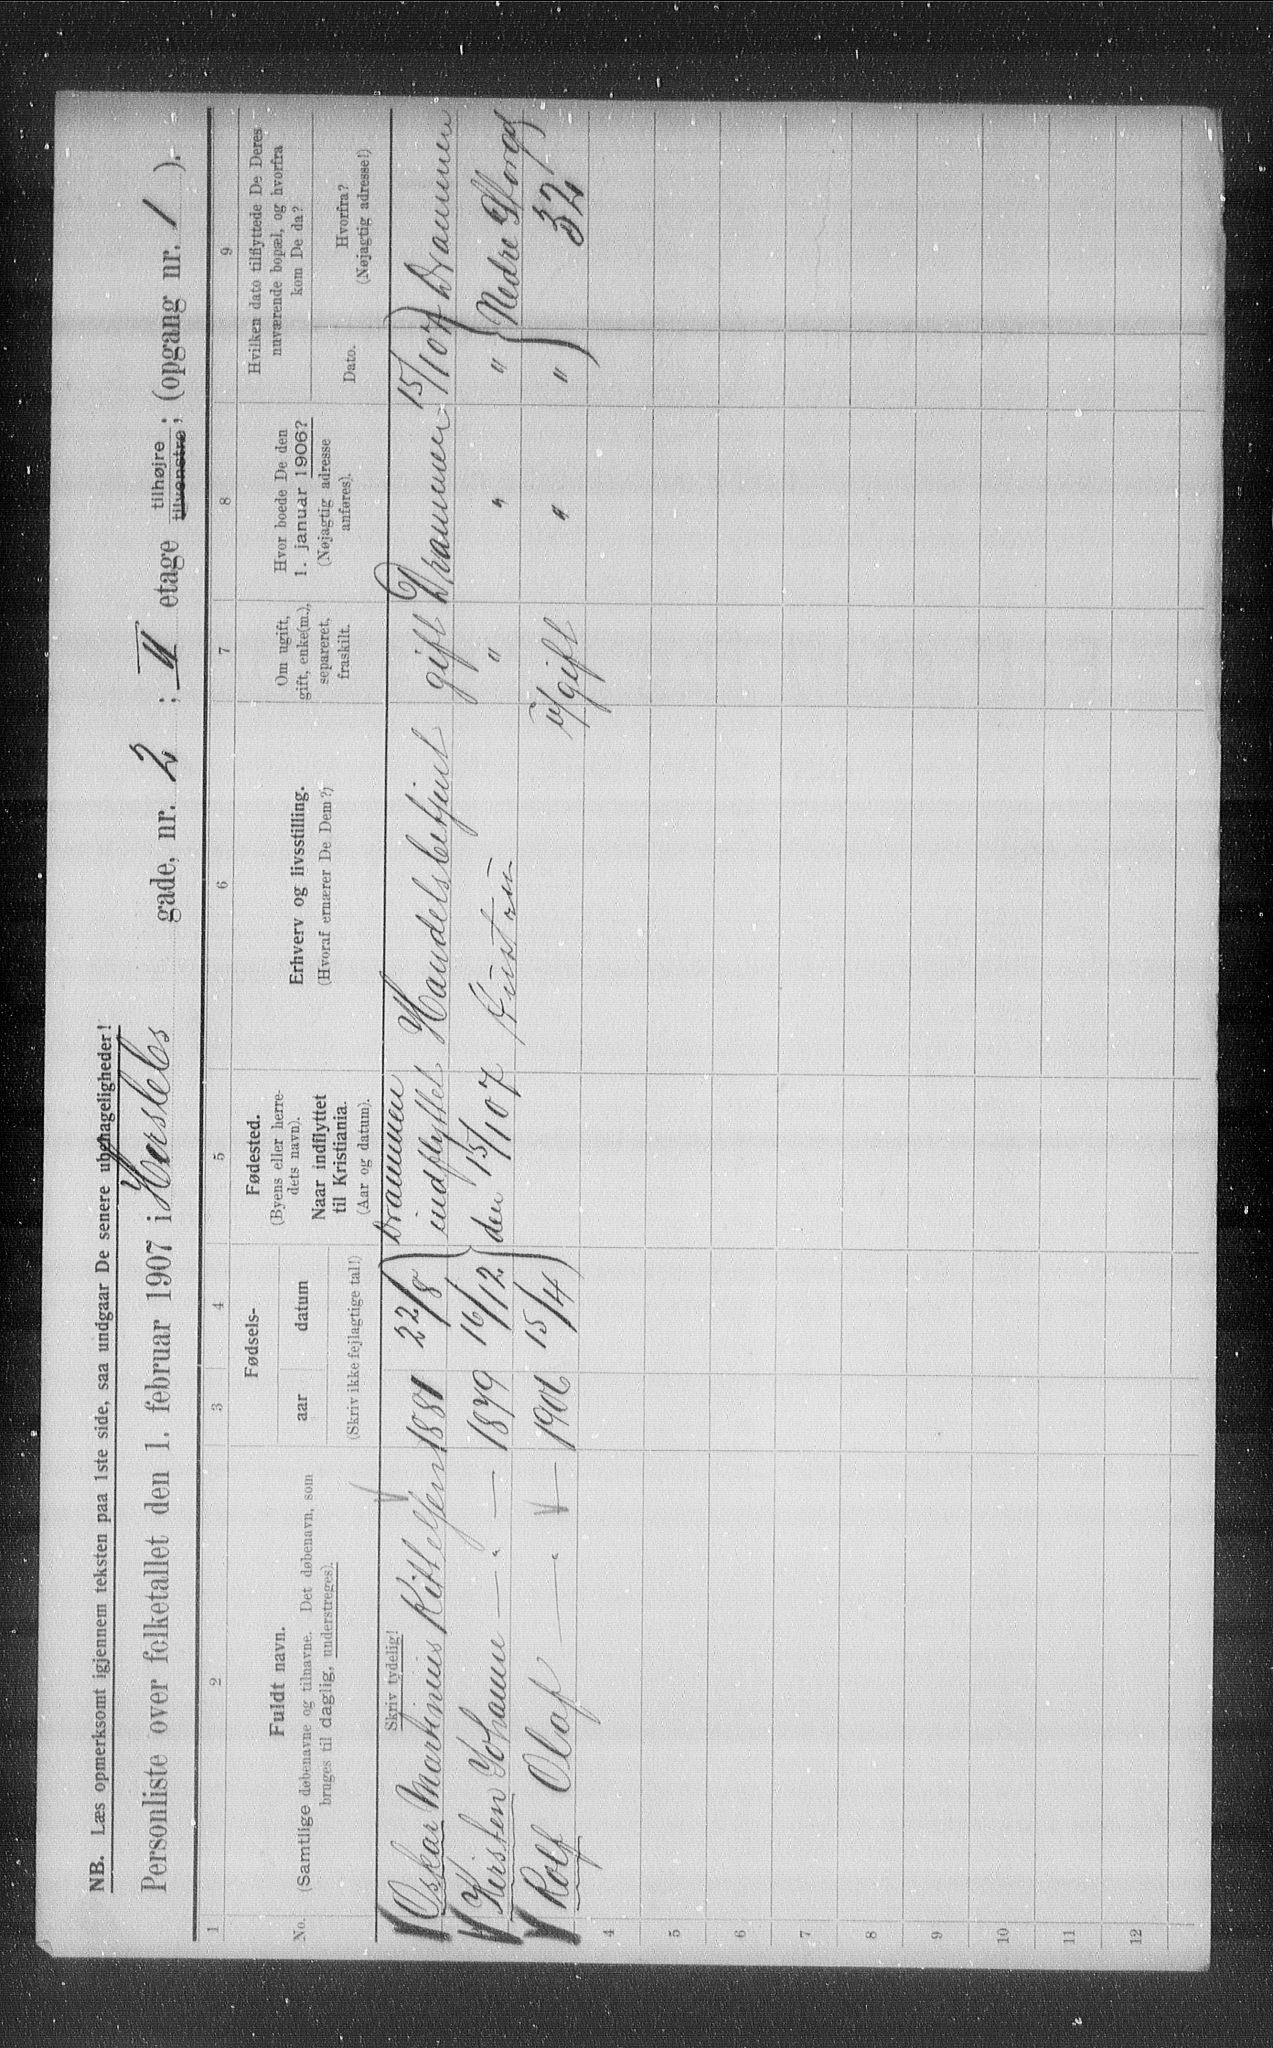 NB. Læs opmerksomt igjennem teksten paa 1ste side, saa undgaar De senere ubehageligheder!
Personliste over folketallet den 1. februar 1907 i Herslebs gade, nr. 2 ; II etage tilhøjre tilvenstre ; (opgang nr. 1 ).
1 2 3 4 5 6 7 8 9
No.
Fuldt navn.
(Samtlige døbenavne og tilnavne. Det døbenavn, som
bruges til daglig, understreges).
Skriv tydelig!
Fødsels-
aar datum
(Skriv ikke fejlagtige tal!)
Fødested.
(Byens eller herre-
dets navn).
Naar indflyttet
til Kristiania.
(Aar og datum).
Erhverv og livsstilling.
(Hvoraf ernærer De Dem?)
Om ugift,
gift, enke(m.),
separeret,
fraskilt.
Hvor boede De den
1. januar 1906?
(Nøjagtig adresse
anføres).
Hvilken dato tilflyttede De Deres
nuværende bopæl, og hvorfra
kom De da?
Dato.
Hvorfra?
(Nøjagtig adresse!)
Oskar Martinius Kittelsen 1881 22/8 Drammen indflyttet Handelsbetjent gift Drammen 15/1 07 Drammen
Kirsten Johanne — " — 1879 16/12 den 15/1 07 Hustru " " " Nedre Storgd
Rolf Olaf — " — 1906 15/4 ugift " " 32
4
5
6
7
8
9
10
11
12